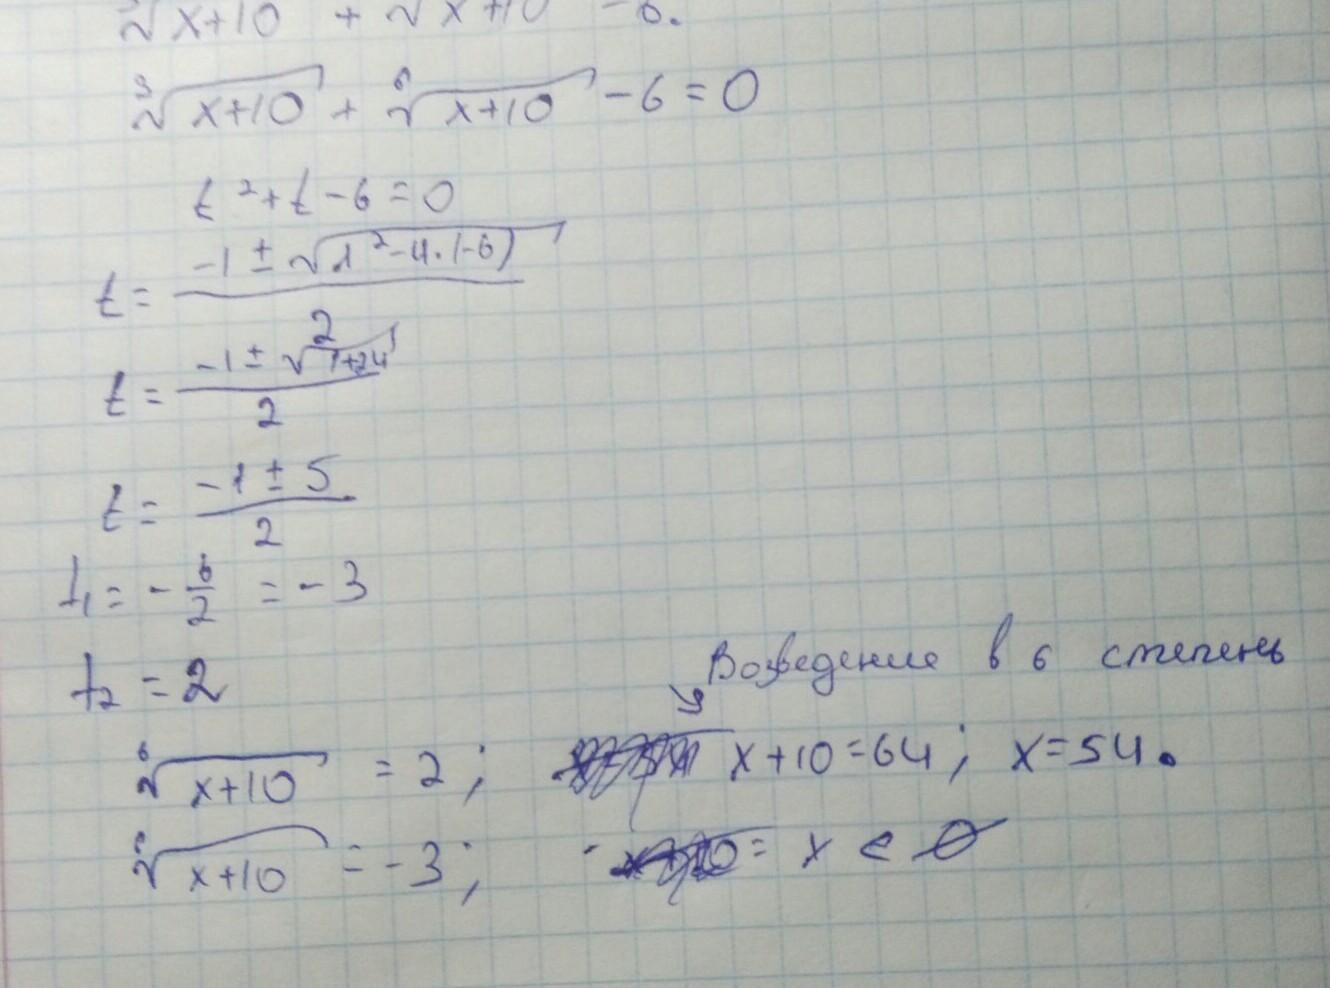 ∛x+10 + ∜x+10 -6.
∛x+10 + ⁶√x+10 -6=0
t²+t-6=0
t= -1±√1²-4·(-6) / 2
t= -1±√1+24 / 2
t= -1±5 / 2
t₁= -6/2 = -3
t₂=2
Возведение в 6 степень
⁶√x+10 =2; x+10=64; x=54.
⁶√x+10 =-3; = x ∈ ∅